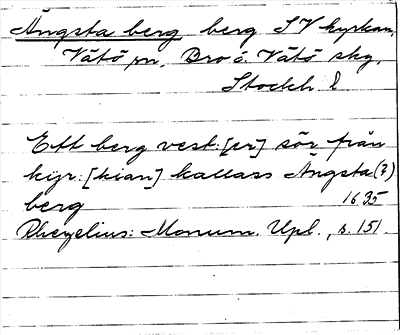 Ängsta berg berg SV kyrkan,
Vätö sn, Bro o. Vätö skg,
Stockh. l
Ett berg vest: [er] sör från
kyr: [kian] kallass Ängsta (?)
berg 1635
Rhezelius: Monum. Upl., s. 151.